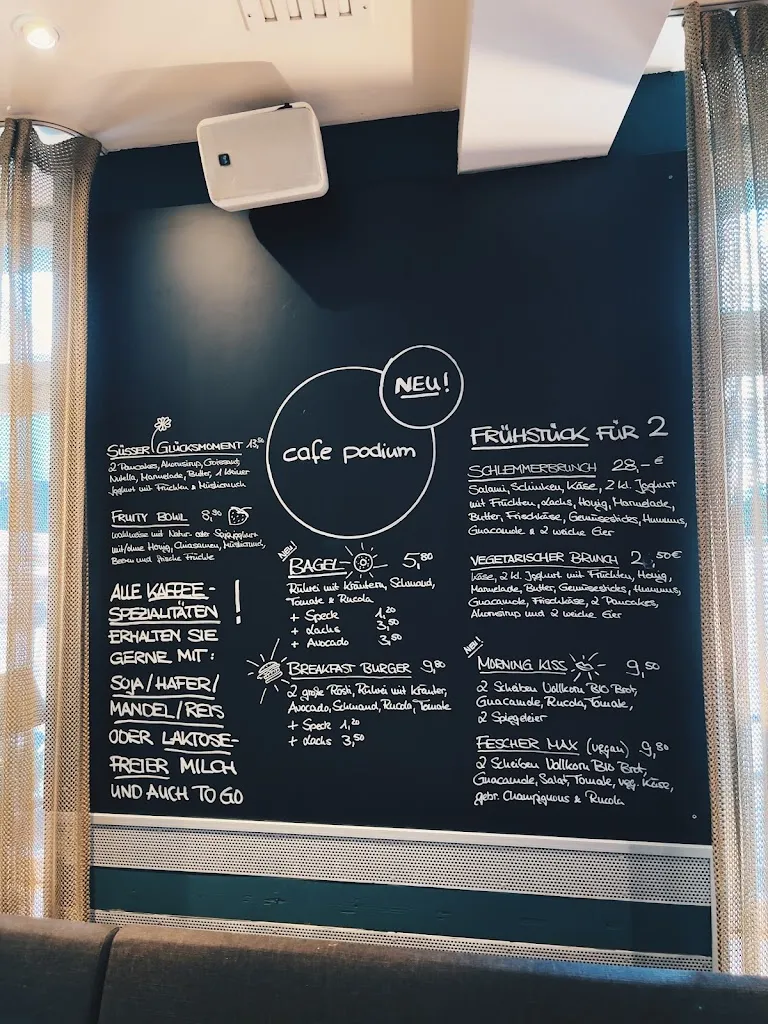 SÜSSER GLÜCKSMOMENT 13,50
2 Pancakes, Ahornsirup, Croissant,
Nutella, Marmelade, Butter, 1 kleiner
Joghurt mit Früchten & Müslicrunch
FRUITY BOWL 8,90
wahlweise mit Natur- oder Sojajoghurt
mit/ohne Honig, Chiasamen, Müslicrunch,
Beeren und frische Früchte
ALLE KAFFEE-
SPEZIALITÄTEN !
ERHALTEN SIE
GERNE MIT:
SOJA/HAFER/
MANDEL/REIS
ODER LAKTOSE-
FREIER MILCH
UND AUCH TO GO
NEU!
cafe podium
NEU!
BAGEL 5,80
Rührei mit Kräutern, Schmand,
Tomate & Rucola
+ Speck 1,20
+ Lachs 3,50
+ Avocado 3,50
BREAKFAST BURGER 9,80
2 große Rösti, Rührei mit Kräuter,
Avocado, Schmand, Rucola, Tomate
+ Speck 1,20
+ Lachs 3,50
FRÜHSTÜCK FÜR 2
SCHLEMMERBRUNCH 28,-€
Salami, Schinken, Käse, 2 kl. Joghurt
mit Früchten, Lachs, Honig, Marmelade,
Butter, Frischkäse, Gemüsesticks, Hummus,
Guacamole & 2 weiche Eier
VEGETARISCHER BRUNCH
Käse, 2 kl. Joghurt mit Früchten, Honig,
Marmelade, Butter, Gemüsesticks, Hummus,
Guacamole, Frischkäse, 2 Pancakes,
Ahornsirup und 2 weiche Eier
NEU!
MORNING KISS 9,50
2 Scheiben Vollkorn BIO Brot,
Guacamole, Rucola, Tomate,
2 Spiegeleier
FESCHER MAX (vegan) 9,80
2 Scheiben Vollkorn BIO Brot,
Guacamole, Salat, Tomate, veg. Käse,
gebr. Champignons & Rucola